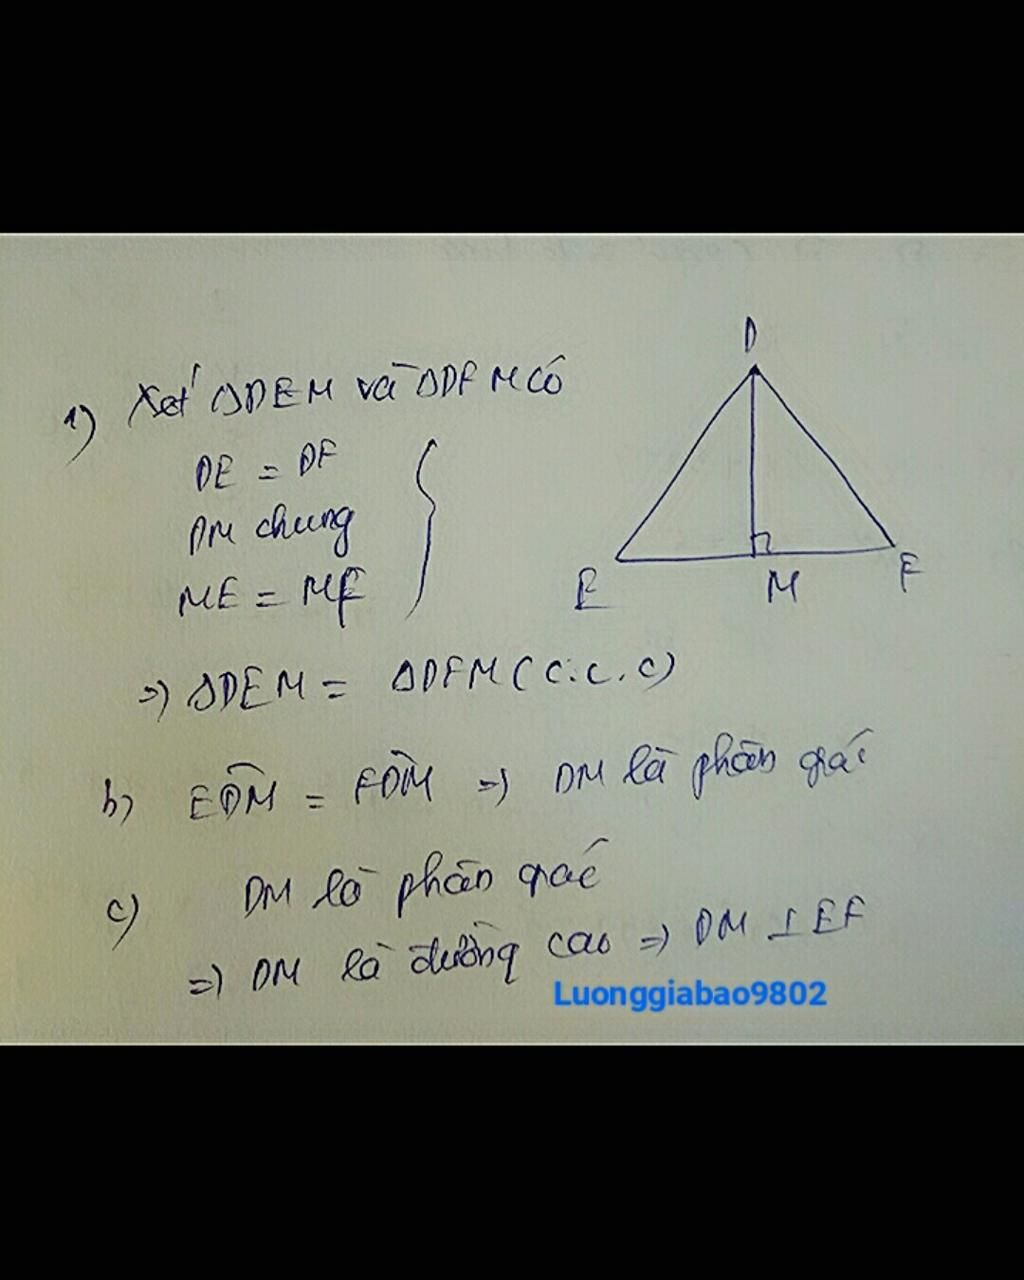 1) Xét ΔDEM và ΔDFM có
DE = DF
DM chung
ME = MF
=) ΔDEM = ΔDFM (c.c.c)
b) EDM̂ = FDM̂ =) DM là phân giác
c) DM là phân giác
=) DM là đường cao =) DM ⊥ EF
D
E
M
F
Luonggiabao9802